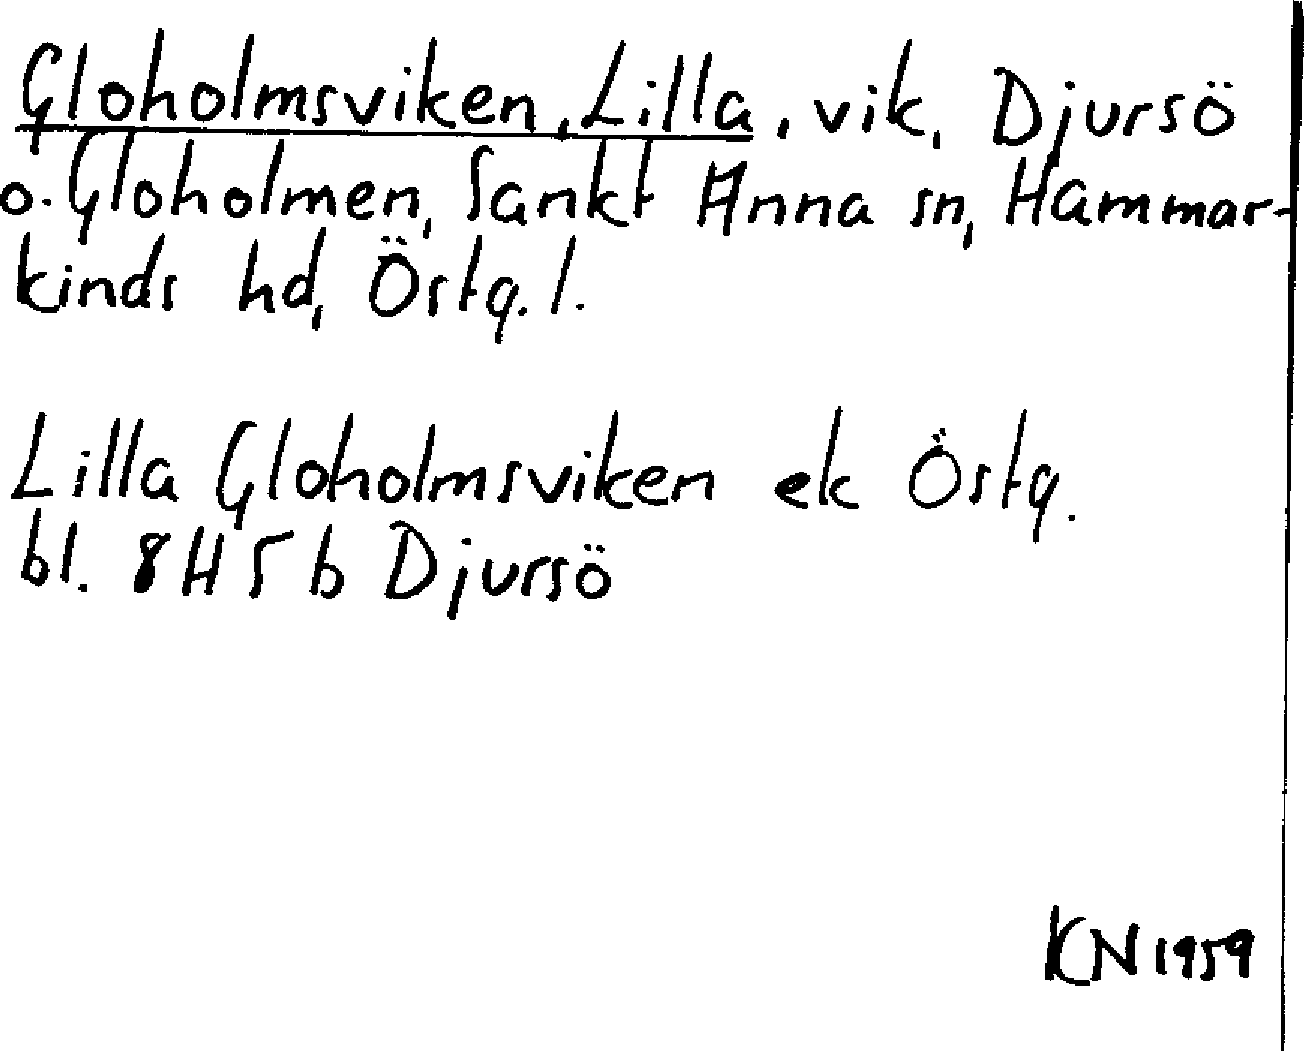 Gloholmsviken, Lilla, vik, Djursö
o. Gloholmen, Sankt Anna sn, Hammar-
kinds hd, Östg. l.
Lilla Gloholmsviken ek Östg.
bl. 8H 5 b Djursö
KN 1959